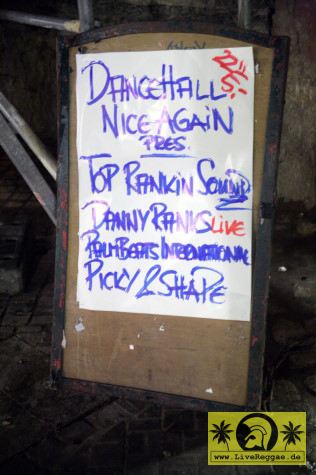 22/
5.-
DANCEHALL
NICE AGAIN
PRES.
TOP RANKIN SOUND
DANNY RANKS LIVE
PALMBEATS INTERNATIONAL
PICKY & SHAPE
www.LiveReggae.de